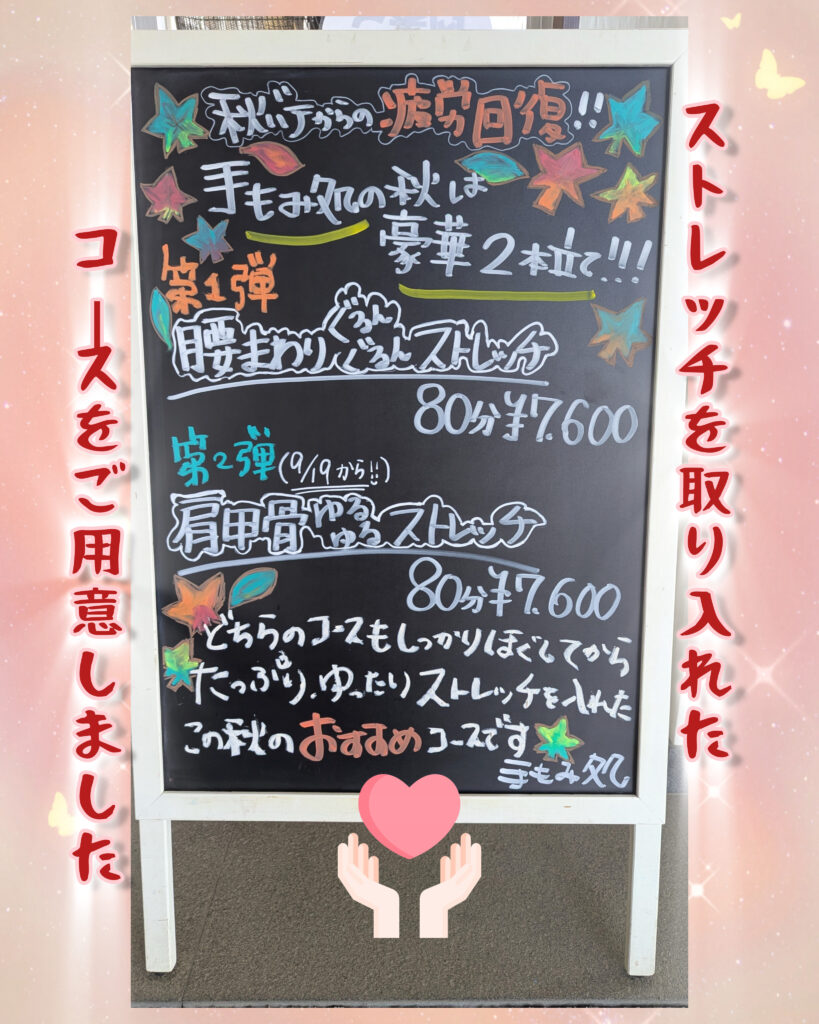 ストレッチを取り入れた
コースをご用意しました
秋バテからの疲労回復!!
手もみ処の秋は
豪華2本立て!!!
第1弾
腰まわりぐるんぐるんストレッチ
80分¥7.600
第2弾(9/19から!!)
肩甲骨ゆるゆるストレッチ
80分¥7.600
どちらのコースもしっかりほぐしてから
たっぷり、ゆったりストレッチを入れた
この秋のおすすめコースです
手もみ処